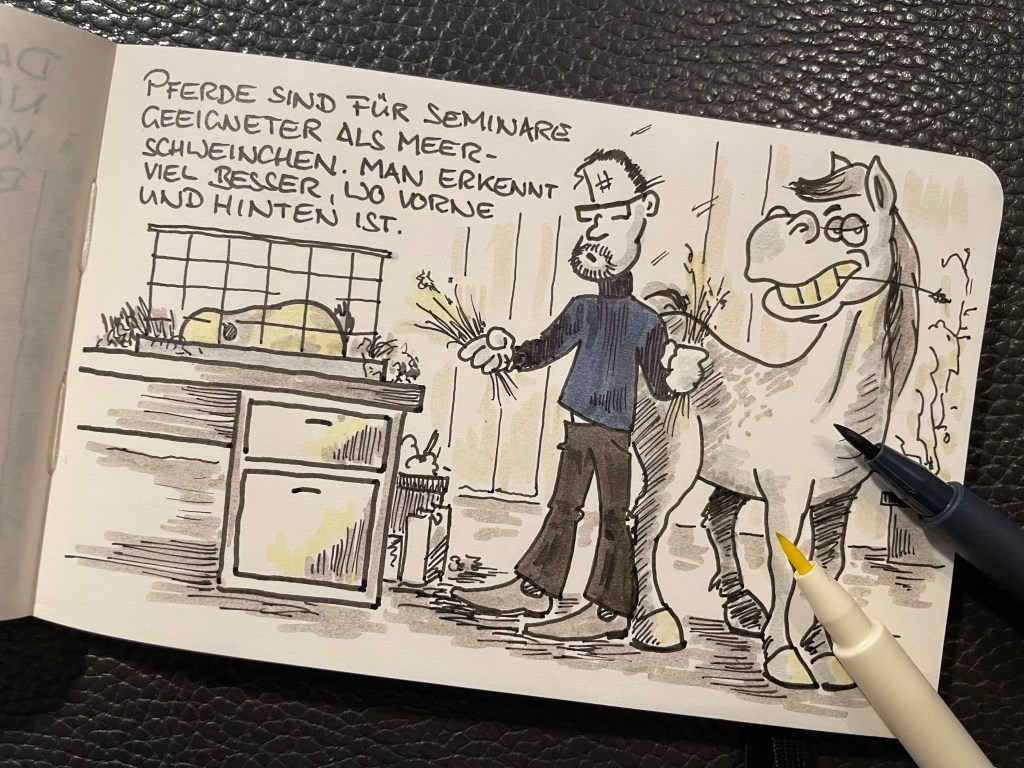 PFERDE SIND FÜR SEMINARE
GEEIGNETER ALS MEER-
SCHWEINCHEN. MAN ERKENNT
VIEL BESSER, WO VORNE
UND HINTEN IST.